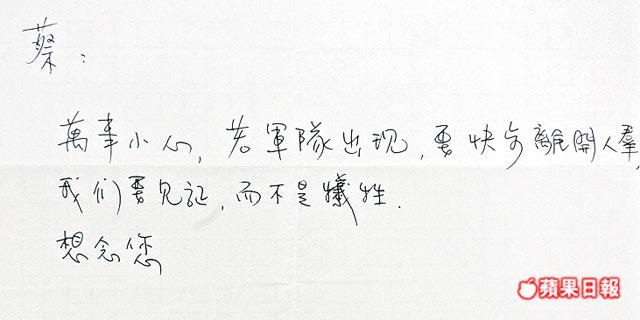 蔡：
萬事小心，若軍隊出现，要快步離開人羣，
我们要见証，而不是犧牲．
想念您
蘋果日報